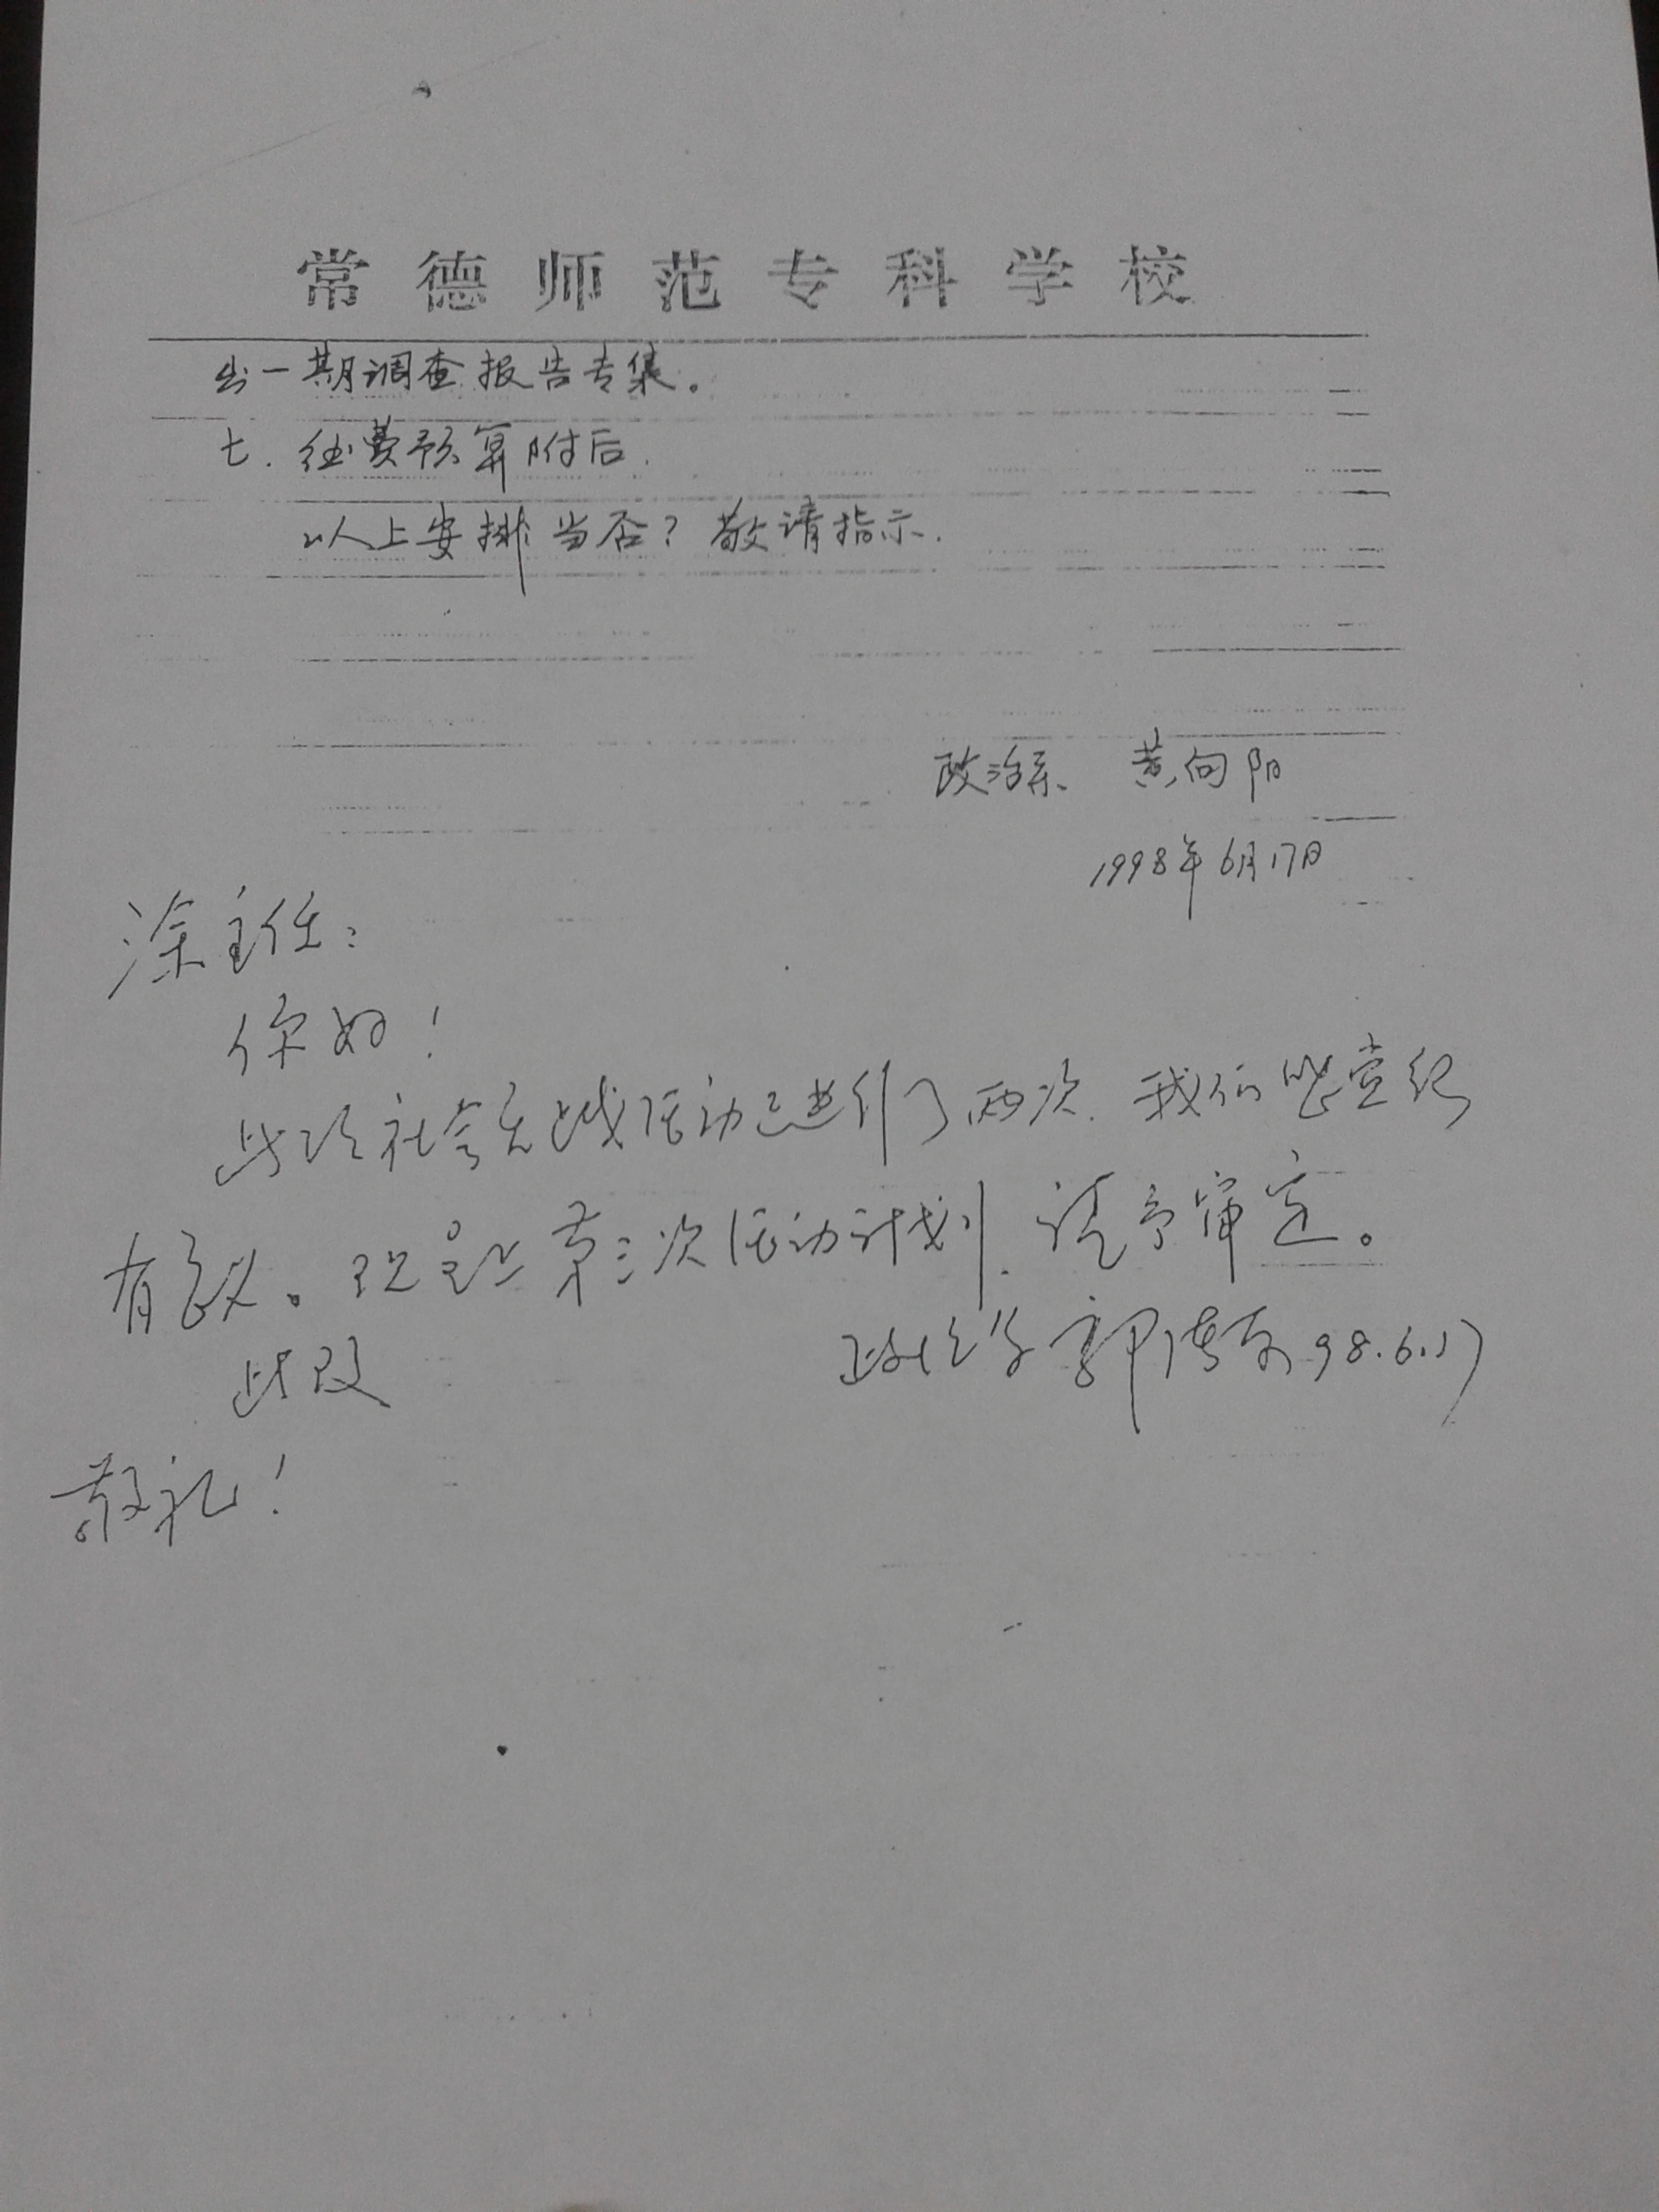 常德师范专科学校
出一期调查报告专集。
七.经费预算附后.
以上安排当否?敬请指示.
政治系 黄向阳
1998年6月17日
涂主任:
你好!
此项社会实践活动已进行了两次.我们觉很
有意义。现呈上第三次活动计划.请予审定。
此致
政治系 郭 98.6.17
敬礼!